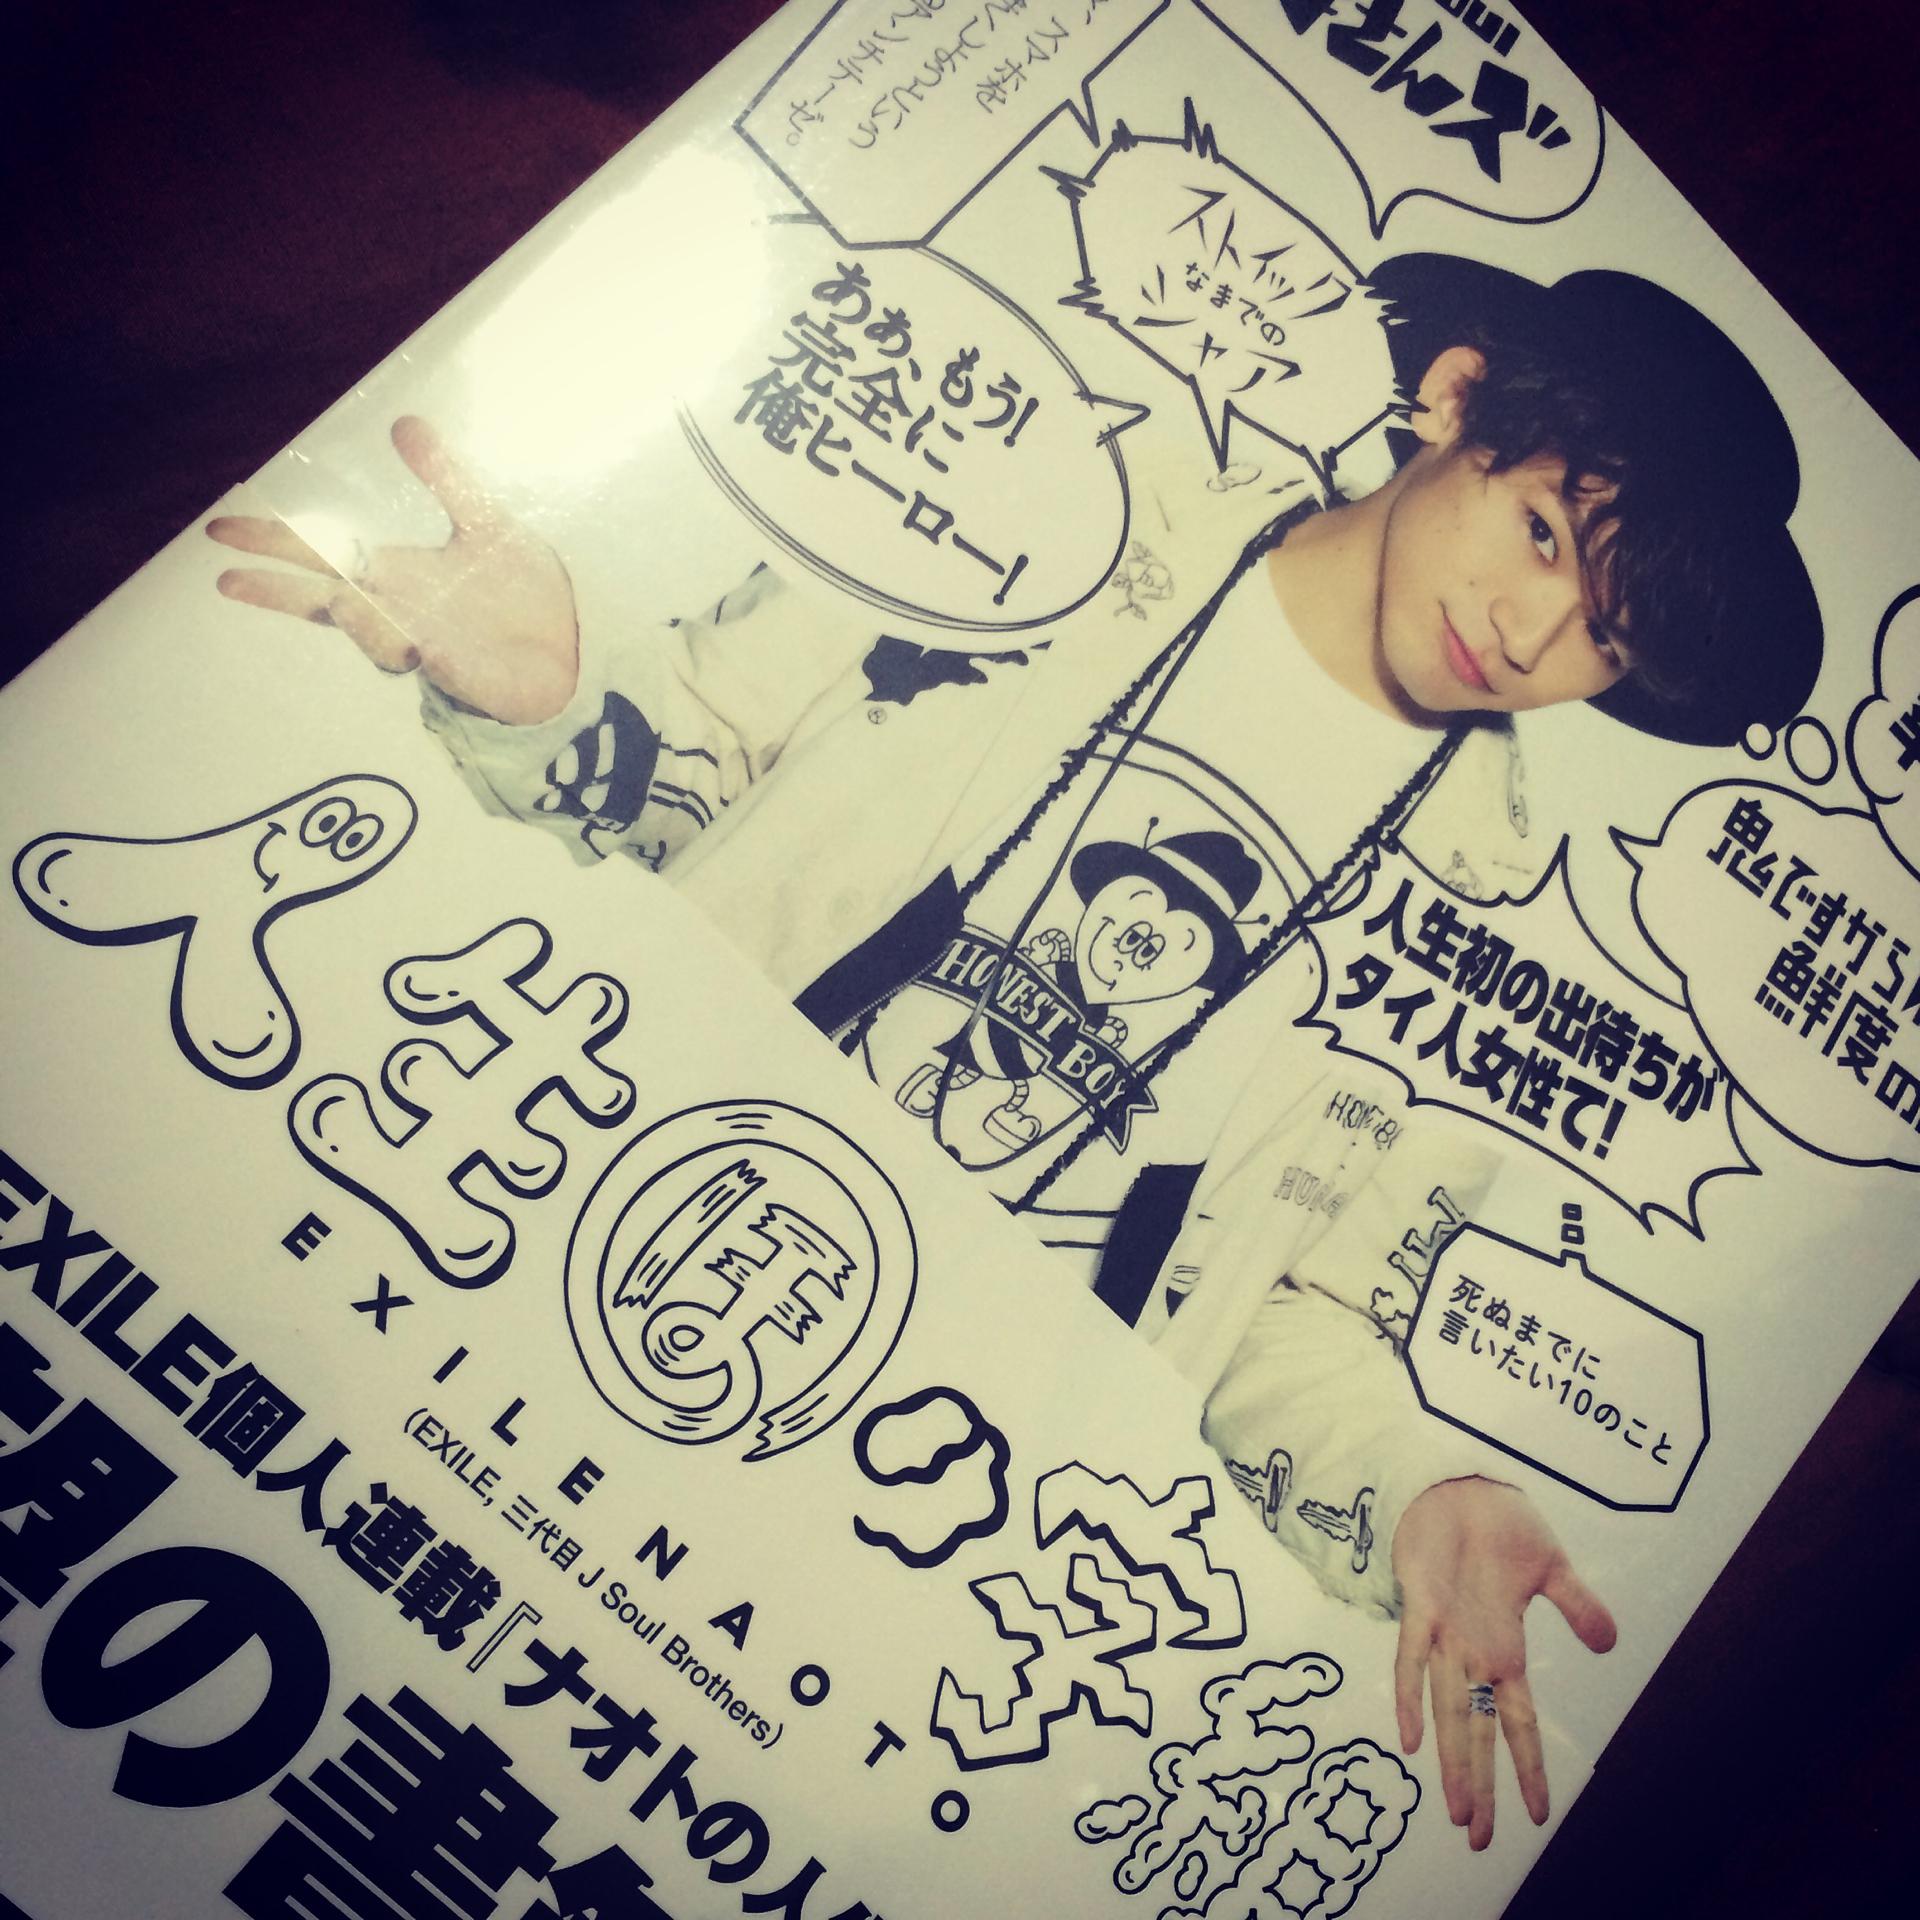 さんズ
スマホ祀
きしようという
アンチテーゼ。
ストイック
なまでの
シャア
ああ、もう!
完全に
俺ヒーロー!
鬼ですから
鮮度の
人生初の出待ちが
タイ人女性て!
死ぬまでに
言いたい10のこと
HONEST BOY
®
人生(ほの笑録
EXILE NAOTO
(EXILE, 三代目 J Soul Brothers)
EXILE個人連載『ナオトの人
の書